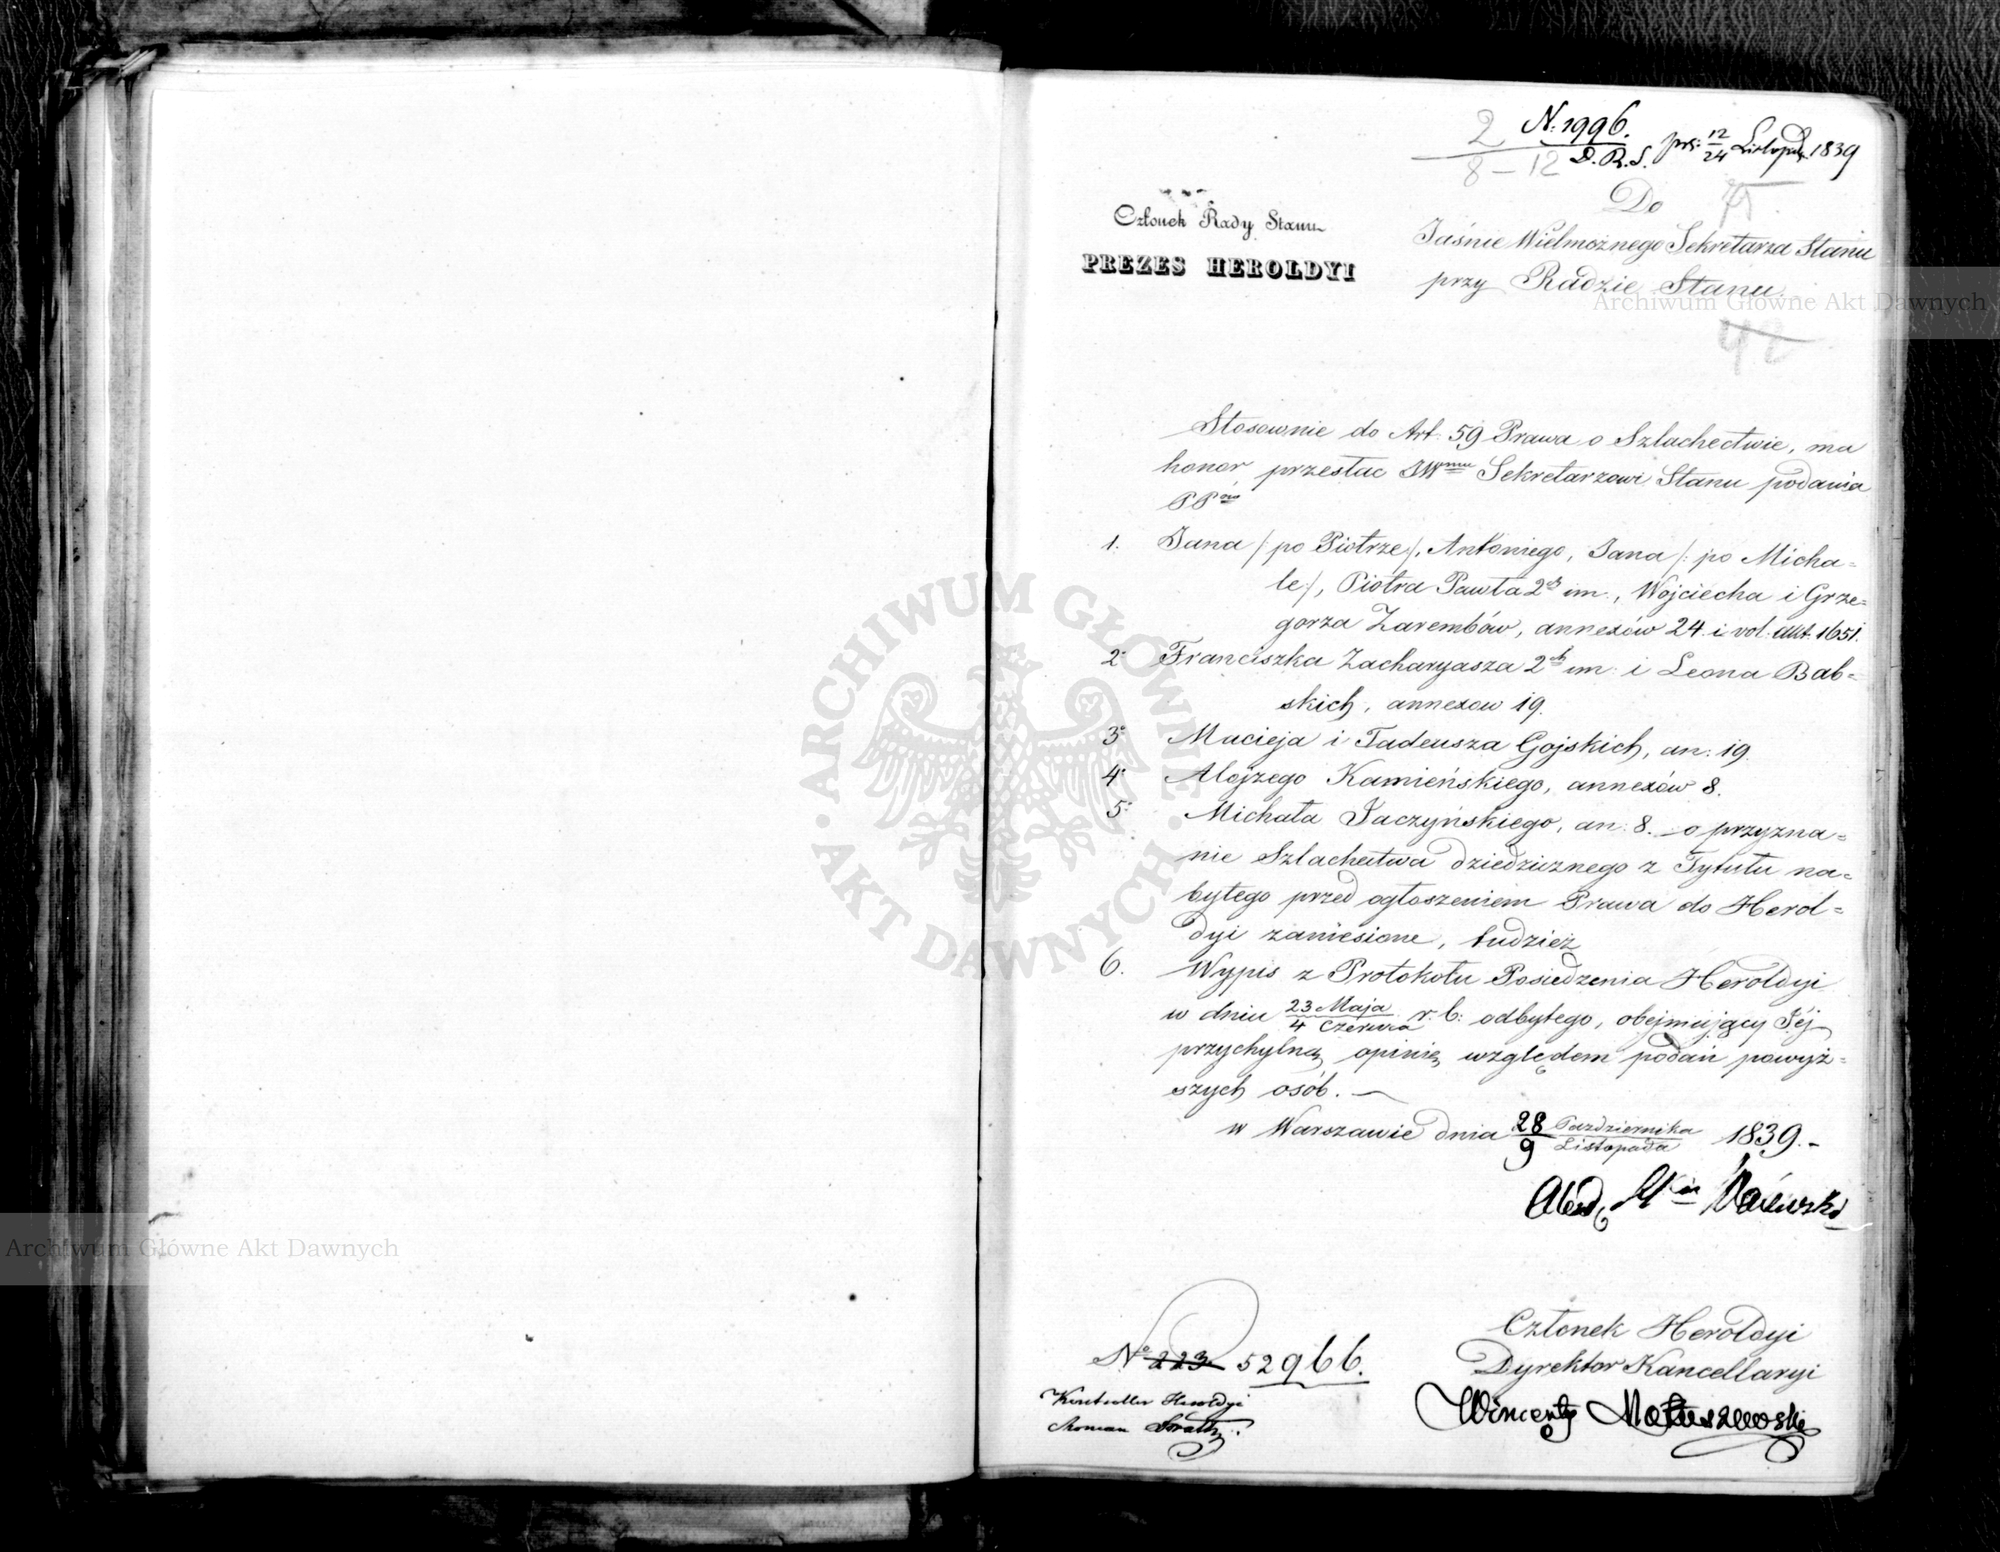 N: 1996.
D. R. S. prs: 12/24 Listopada 1839
2
8 – 12
Członek Rady Stanu
PREZES HEROLDYI
Do
Jaśnie Wielmożnego Sekretarza Stanu
przy Radzie Stanu.
42
Stosownie do Art. 59 Prawa o Szlachectwie, ma
honor przesłac JWmu Sekretarzowi Stanu podania
PPów
1. Jana /: po Piotrze:/, Antoniego, Jana /: po Micha=
le:/, Piotra Pawła 2ch im., Wojciecha i Grze=
gorza Zarembów, annexów 24 i vol: akt. 1651.
2° Franciszka Zacharyasza 2ch im: i Leona Bab=
skich, annexow 19.
3° Macieja i Tadeusza Gojskich, an: 19
4° Alojzego Kamieńskiego, annexów 8.
5° Michała Jaczyńskiego, an: 8. o przyzna=
nie Szlachectwa dziedzicznego z Tytułu na=
bytego przed ogłoszeniem Prawa do Herol=
dyi zaniesione, tudzież
6. Wypis z Protokołu Posiedzenia Heroldyi
w dniu 23 Maja/4 Czerwca r. b: odbytego, obejmujący Jéj
przychylną opinię względem podań powyż=
szych osób. —
w Warszawie dnia 28 Października/9 Listopada 1839. –
Członek Heroldyi
Dyrektor Kancellaryi
Wincenty Matuszewski
N° 223 52966.
Kontroller Heroldyi
Roman
Archiwum Główne Akt Dawnych
Archiwum Główne Akt Dawnych
ARCHIWUM GŁÓWNE AKT DAWNYCH